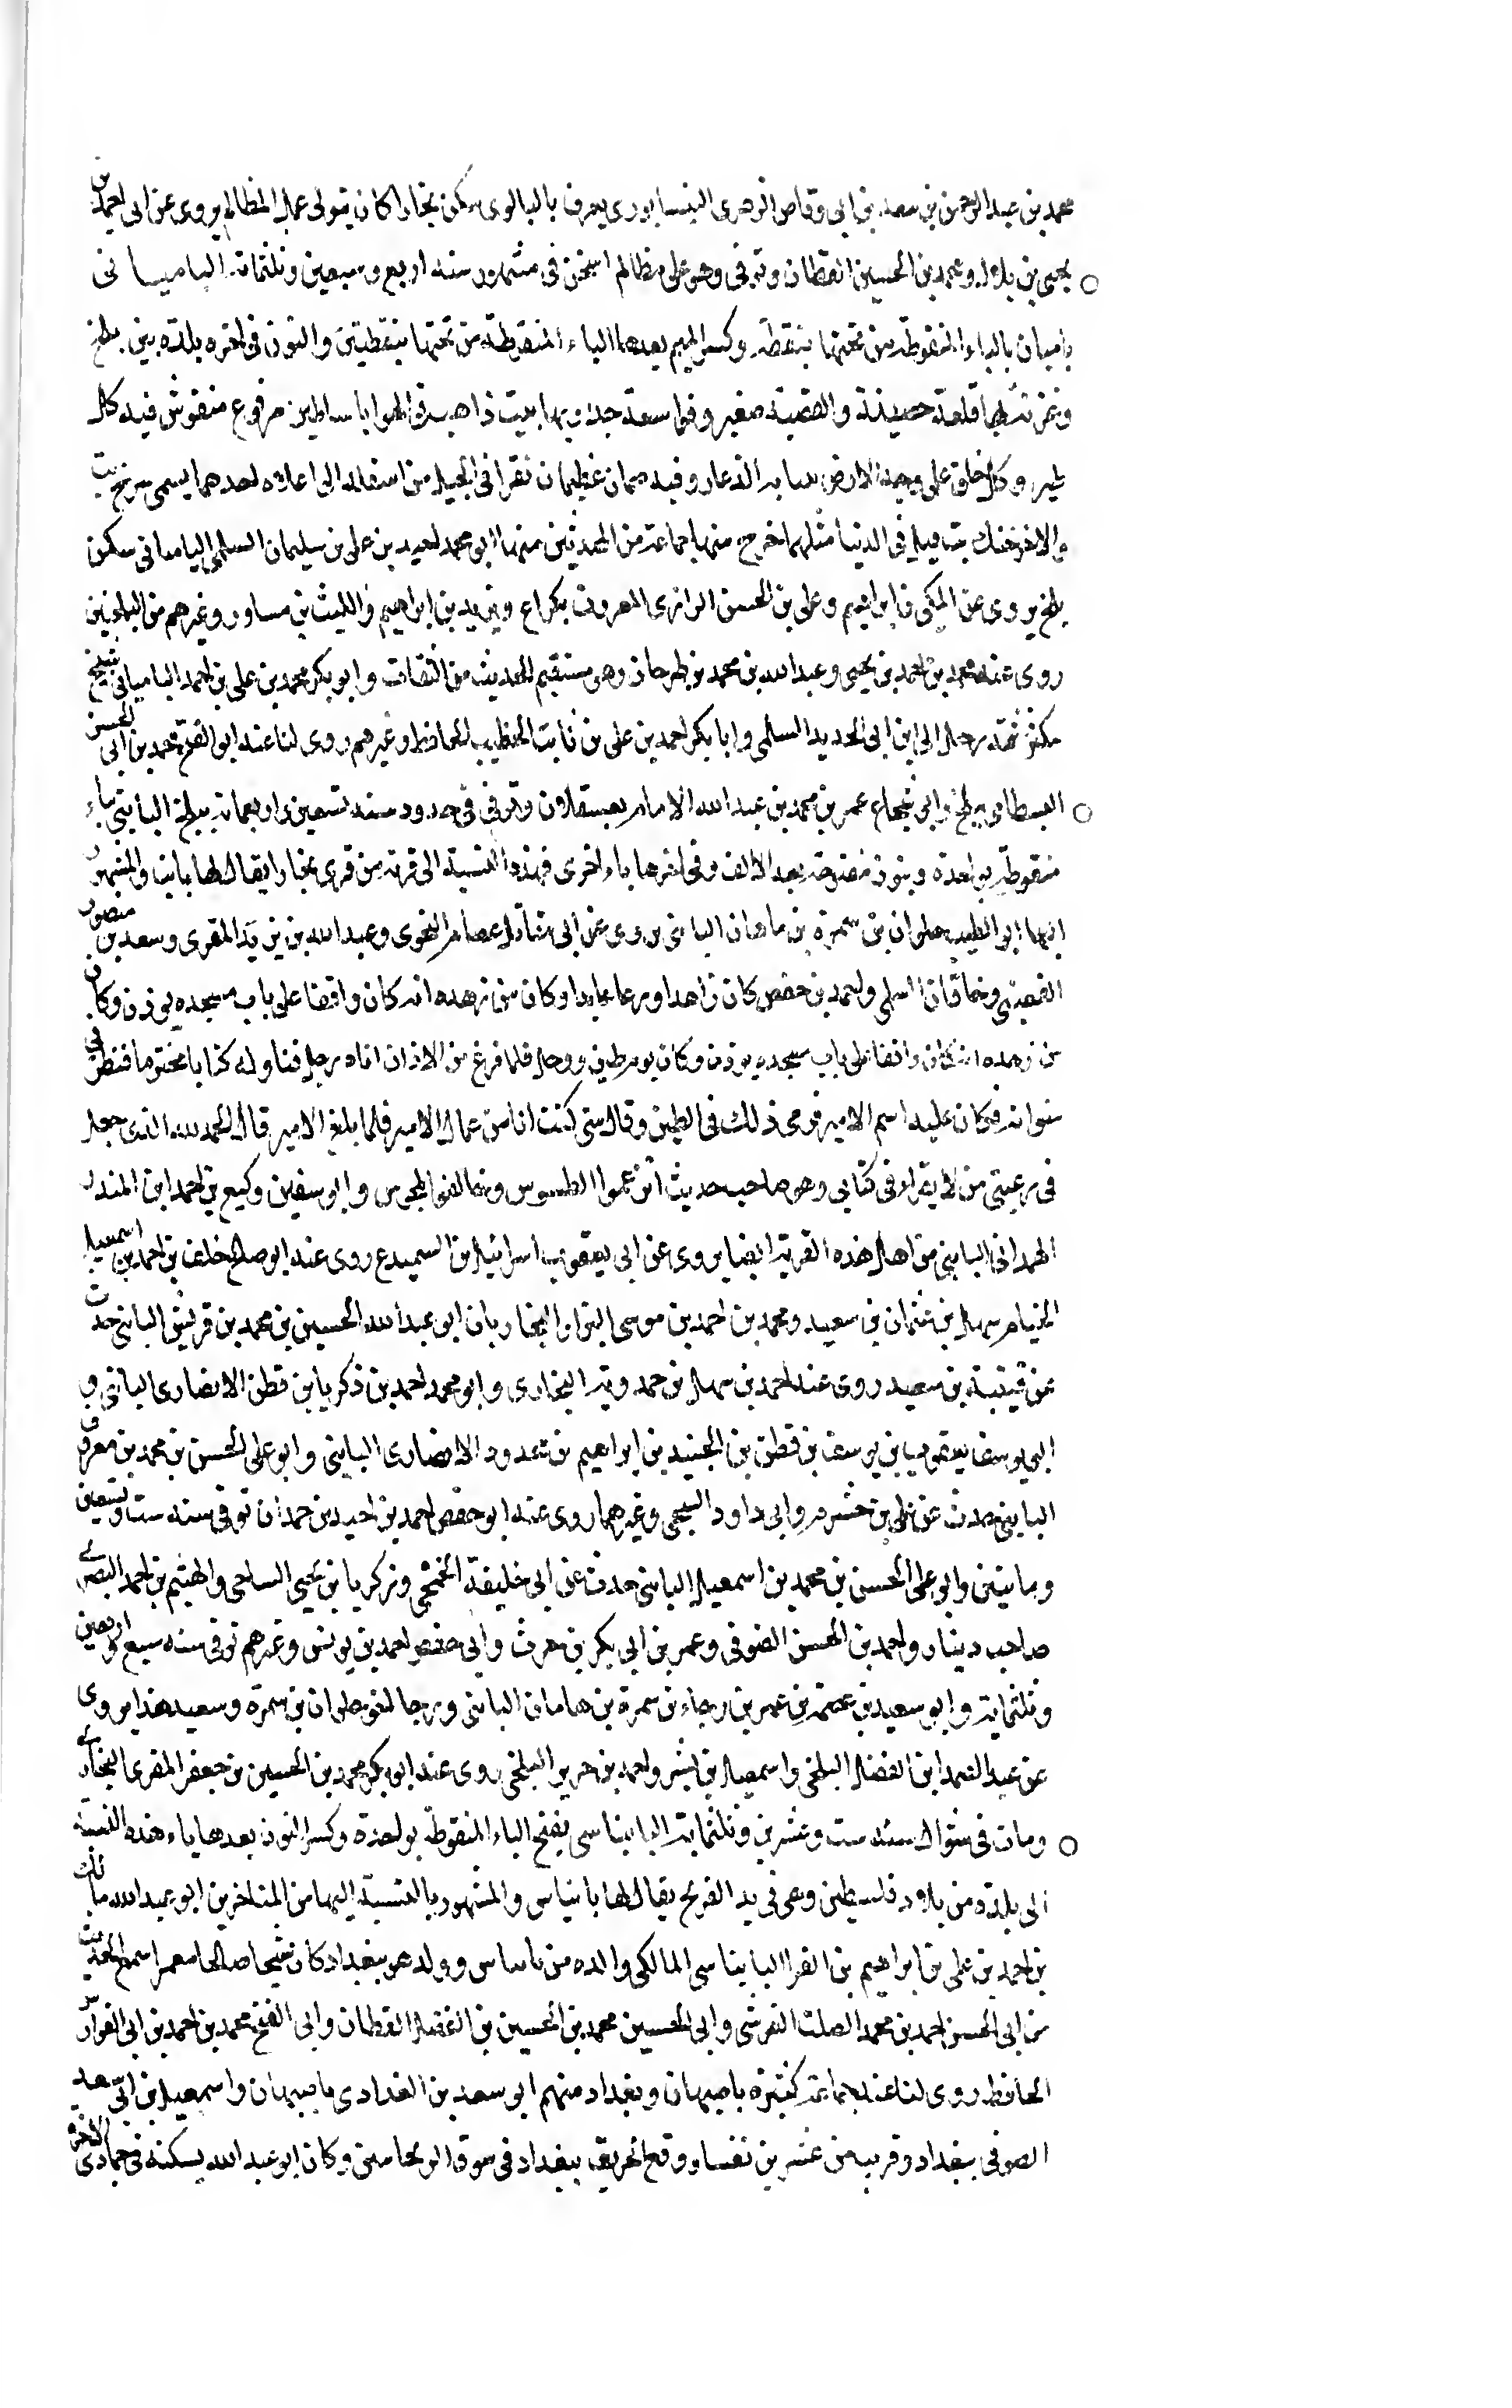 محمد بن عبد الرحمن بن سعد بن ابى وقاص الزهرى النيسابورى يعرف بالبالوى سكن بخارا كان يتولى عمل المظالم يروى عن ابى احمد بن
يحيى بن بلال ومحمد بن الحسين القطان وتوفى وهو على مظالم فى شهور سنه اربع وسبعين وثلثمائه الباميانى
باميان بالباء المنقوطة من تحتها بنقطة وكسر الميم بعدها الياء المنقوطة من تحتها بنقطتين والنون فى اخره بلدة بين بلخ
وغزنة بها قلعة حصينة والقصبة صغيرة واسعة جدا وبها بيت ذاهب فى الهوا باساطين مرفوع منقوش فيه كل
طير وكل خلق على وجه الارض الذعار وفيه صنمان عظيمان نقرا فى الجبل من اسفله الى اعلاه احدهما يسمى سرخ بت
والاخر خنك بت قيل فى الدنيا مثلهما خرج منها جماعة من المحدثين منها ابو محمد احيد بن على بن سليمان السلمى الباميانى سكن
بلخ يروى عن المكى بن ابراهيم وعلى بن الحسن الرازى المعروف بكراع ويزيد بن ابراهيم والليث بن مساور وغيرهم من البلخيين
روى عنه محمد بن احمد بن يحيى وعبد الله بن محمد بن طرخان وهو مستقيم الحديث من الثقات وابو بكر محمد بن على بن احمد الباميانى شيخ
مكثر ثقة رحل الى ابن ابى الحديد السلمى وابا بكر احمد بن على بن ثابت الخطيب الحافظ وغيرهم روى لنا عنه ابو الفتح محمد بن ابى الحسن
البسطامى ببلخ وابى شجاع عمر بن محمد بن عبد الله الامام بعسقلان وتوفى فى حدود سنه تسعين واربعمائة ببلخ البابنى بباء
منقوطة بواحدة وبنون مفتوحة بعد الالف وفى اخرها باء اخرى فهذه النسبة الى قرية من قرى بخارا يقال لها بانب والمشهور
انها ابو الطيب جلوان بن سمرة بن ماهان البانبى يروى عن ابى مقاتل عصام النحوى وعبد الله بن يزيد المقرى وسعد بن منصور
القعنبى وخاقان السلمى واحمد بن حفص كان زاهدا ورعا عابدا وكان من زهده انه كان واقفا على باب مسجده يوذن وكان
من زهده انه كان واقفا على باب مسجده يوذن وكان يوم طين ووحل فلما فرغ من الاذان اتاه رجل فناوله كتابا مختوما فنظر فى
عنوانه فكان عليه اسم الامير فرمى ذلك فى الطين وقال متى كنت انا من عمال الامير فلما بلغ الامير قال الحمد لله الذى جعل
فى رعيتى من لا يقراء فى كتابى وهو صاحب حديث اترعوا الطسوس وخالفوا المجوس وابو سفين وكيع بن احمد ابن المنذر
الهمدانى البانبى من اهل هذه القرية ايضا يروى عن ابى يعقوب اسرائيل بن السميدع روى عنه ابو صالح خلف بن احمد بن اسمعيل
الخيام سهل بن عثمان بن سعيد ومحمد بن احمد بن موسى البزاز البخاريان ابو عبد الله الحسين بن محمد بن قريش البانبى حدث
عن قتيبة بن سعيد روى عنه احمد بن سهل بن حمدويه البخارى وابو محمد احمد بن زكريا بن قطن الانصارى البانبى و
ابى يوسف يعقوب بن يوسف بن قطن بن الجنيد بن ابراهيم بن الانصارى البانبى وابو على الحسن بن محمد بن معروف
البانبى حدث عن على بن خشرم وابى داود السنجى وغيرهما روى عنه ابو حفص احمد بن احيد بن حمدان توفى سنه ست وتسعين
ومائتين وابو على الحسن بن محمد بن اسمعيل البانبى حدث عن ابى خليفة الجمحى وزكريا بن يحيى الساجى والهيثم بن احمد البصرى
صاحب دينار واحمد بن الحسن الصوفى وعمر بن ابى بكر بن حرث وابى حفص احمد بن يونس وغيرهم توفى سنه سبع واربعين
وثلثمائه وابو سعيد بن عصمة بن عمر بن رجاء بن سمرة بن هامان البانبى ورجا اخو جلوان بن سمرة وسعيد هذا يروى
عن عبد الصمد ابن الفضل البلخى واسمعيل بن بشر واحمد بن جرير البلخى روى عنه ابو بكر محمد بن الحسين بن جعفر المقرى البخارى
ومات فى شوال سنه ست وعشرين وثلثمائة البانياسى بفتح الباء المنقوطة بواحدة وكسر النون بعدها ياء هذه النسبة
الى بلدة من بلاد فلسطين وهى فى يد الفرنج يقال لها بانياس والمشهور بالنسبة اليها من المتاخرين ابو عبد الله مالك
بن احمد بن على بن ابراهيم بن الفرا البانياسى المالكى والده من بانياس وولد هو ببغداد كان شيخا صالحا معمرا سمع الحديث
من ابى الحسن احمد بن محمد الصلت القرشى وابى الحسين محمد بن الحسين بن الفضل القطان وابى الفتح محمد بن احمد بن ابى الفوارس
الحافظ روى لنا عنه جماعة كثيرة باصبهان وبغداد منهم ابو سعد بن البغدادى باصبهان واسمعيل بن ابى سعد
الصوفى ببغداد وقريب من عشرين نفسا ووقع الحريق ببغداد فى سوق الريحانيين وكان ابو عبد الله يسكنه فى جمادى الاخرة